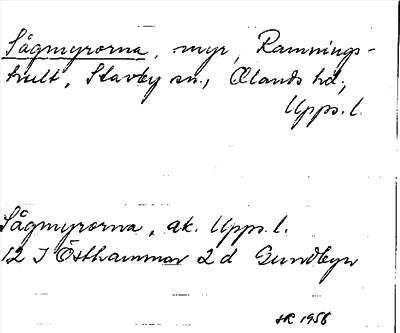 Sågmyrorna, myr, Ramnings-
hult, Stavby sn., Olands hd,
Upps. l.
Sågmyrorna, ak. Upps. l.
12 I Östhammar 2 d Gundbyn
HR 1958